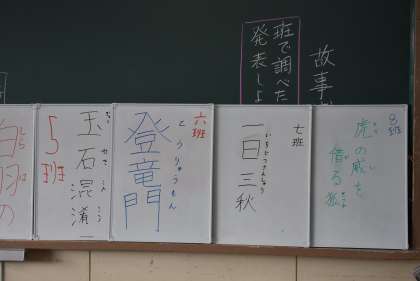 故事
班で調べた
発表しよ
8班
虎の威を
借る狐
七班
一日三秋
いちじつさんしゅう
六班
登竜門
とうりゅうもん
5班
玉石混淆
ぎょくせきこんこう
白羽の
しらは